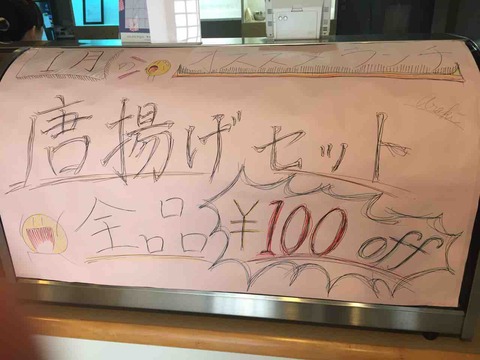 1月の オススメランチ
唐揚げセット
全品 ¥100 off